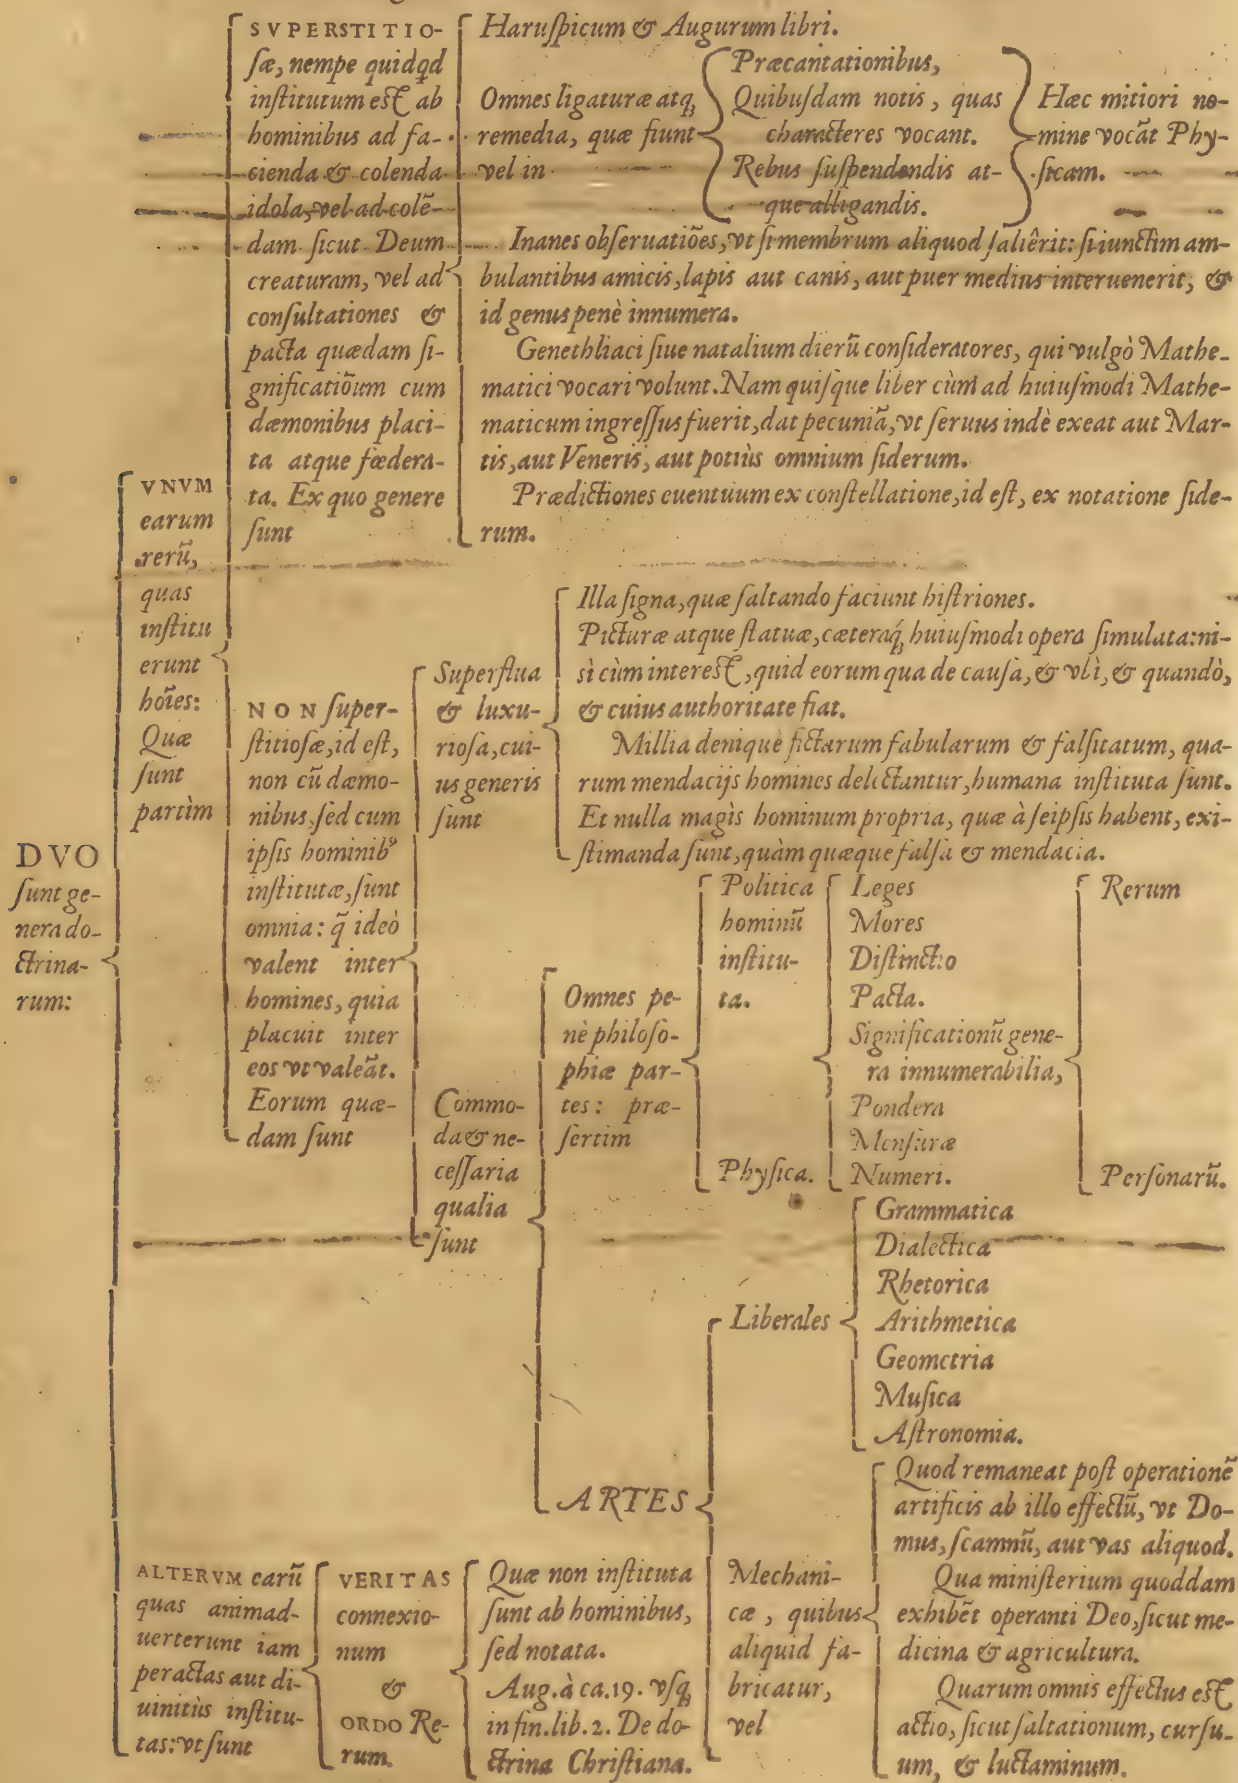 SVPERSTITIO-
ſæ, nempe quidqd
inſtitutum eſt ab
hominibus ad fa-
cienda & colenda
idola, vel ad colē-
dam ſicut Deum
creaturam, vel ad
conſultationes &
pacta quædam ſi-
gnificatiōum cum
dæmonibus placi-
ta atque fœdera-
ta. Ex quo genere
ſunt
Haruſpicum & Augurum libri.
Omnes ligaturæ atq;
remedia, quæ fiunt
vel in
Præcantationibus,
Quibuſdam notis, quas
characteres vocant.
Rebus ſuſpendendis at-
que alligandis.
Hæc mitiori no-
mine vocāt Phy-
ſicam.
Inanes obſeruatiōes, vt ſi membrum aliquod ſalierit: ſi iunctim am-
bulantibus amicis, lapis aut canis, aut puer medius interuenerit, &
id genus penè innumera.
Genethliaci ſiue natalium dierū conſideratores, qui vulgò Mathe-
matici vocari volunt. Nam quiſque liber cùm ad huiuſmodi Mathe-
maticum ingreſſus fuerit, dat pecuniā, vt ſeruus indè exeat aut Mar-
tis, aut Veneris, aut potiùs omnium ſiderum.
Prædictiones euentuum ex conſtellatione, id eſt, ex notatione ſide-
rum.
VNVM
earum
rerū,
quas
inſtitu
erunt
hoīes:
Quæ
ſunt
partìm
NON ſuper-
ſtitioſæ, id eſt,
non cū dæmo-
nibus, ſed cum
ipſis hominib⁹
inſtitutæ, ſunt
omnia: q̄ ideò
valent inter
homines, quia
placuit inter
eos vt valeāt.
Eorum quæ-
dam ſunt
Superflua
& luxu-
rioſa, cui-
us generis
ſunt
Illa ſigna, quæ ſaltando faciunt hiſtriones.
Picturæ atque ſtatuæ, cæteraq́; huiuſmodi opera ſimulata: ni-
ſi cùm intereſt, quid eorum qua de cauſa, & vbì, & quandò,
& cuius authoritate fiat.
Millia denique fictarum fabularum & falſitatum, qua-
rum mendacijs homines delectantur, humana inſtituta ſunt.
Et nulla magìs hominum propria, quæ à ſeipſis habent, exi-
ſtimanda ſunt, quàm quæque falſa & mendacia.
DVO
ſunt ge-
nera do-
ctrina-
rum:
Commo-
da & ne-
ceſſaria
qualia
ſunt
Omnes pe-
nè philoſo-
phiæ par-
tes: præ-
ſertim
Politica
hominū
inſtitu-
ta.
Phyſica.
Leges
Mores
Diſtinctio
Pacta.
Significationū gene-
ra innumerabilia,
Pondera
Menſuræ
Numeri.
Rerum
Perſonarū.
ARTES
Liberales
Grammatica
Dialectica
Rhetorica
Arithmetica
Geometria
Muſica
Aſtronomia.
Mechani-
cæ, quibus
aliquid fa-
bricatur,
vel
Quod remaneat poſt operationē
artificis ab illo effectū, vt Do-
mus, ſcamnū, aut vas aliquod.
Qua miniſterium quoddam
exhibēt operanti Deo, ſicut me-
dicina & agricultura.
Quarum omnis effectus eſt
actio, ſicut ſaltationum, curſu-
um, & luctaminum.
ALTERVM earū
quas animad-
uerterunt iam
peractas aut di-
uinitùs inſtitu-
tas: vt ſunt
VERITAS
connexio-
num
&
ORDO Re-
rum.
Quæ non inſtituta
ſunt ab hominibus,
ſed notata.
Aug. à ca. 19. vſq;
in fin. lib. 2. De do-
ctrina Chriſtiana.